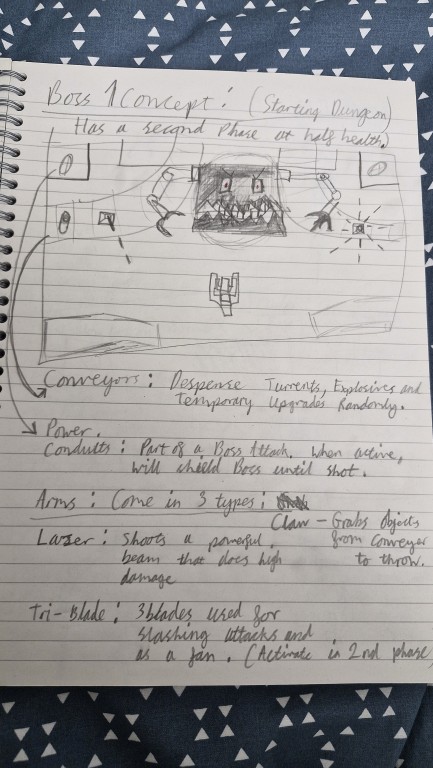 Boss 1 Concept: (Starting Dungeon)
Has a second Phase at half health.
Conveyors: Despense Turrents, Explosives and
Temporary Upgrades Randomly.
Power
Conduits: Part of a Boss Attack. When active,
will shield Boss until shot.
Arms: Come in 3 types:
Claw - Grabs Objects
from conveyer
to throw.
Lazer: Shoots a powerful
beam that does high
damage
Tri-Blade: 3 blades used for
slashing attacks and
as a fan. (Activate in 2nd phase)